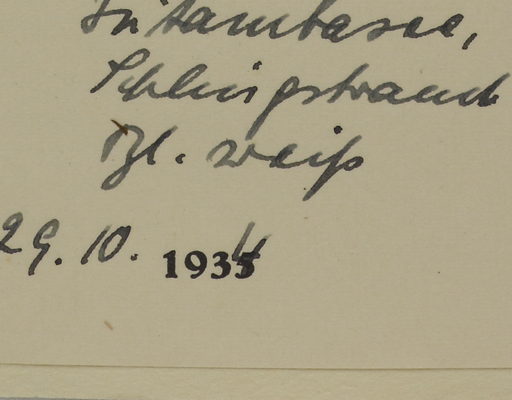 in Tambasee,
Schlingstrauch
Bl. weiß
29. 10. 1934